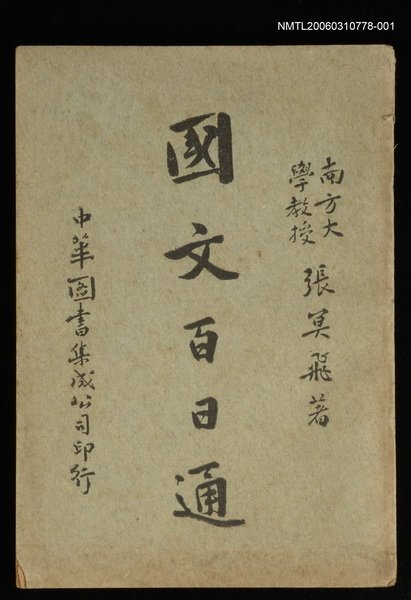 NMTL20060310778-001
南方大
學教授
張冥飛著
國文百日通
中華圖書集成公司印行